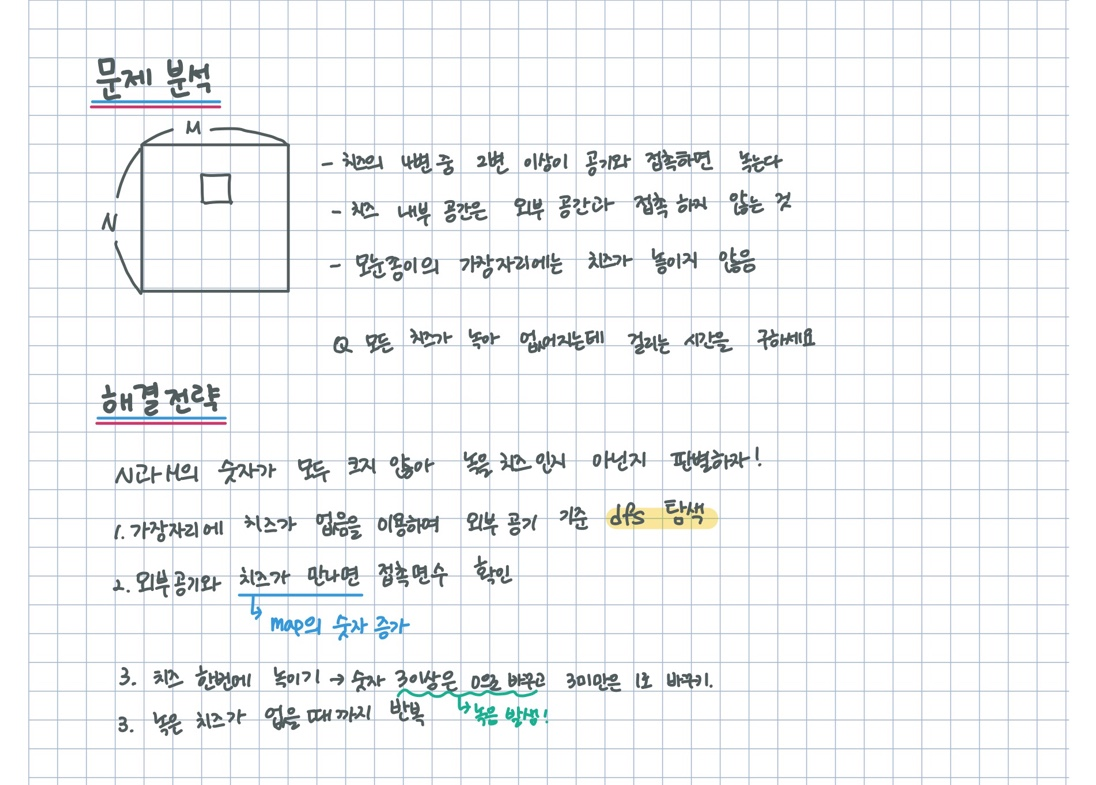 문제 분석
M
N
- 치즈의 4변 중 2변 이상이 공기와 접촉하면 녹는다
- 치즈 내부 공간은 외부 공간과 접촉 하지 않는 것
- 모눈종이의 가장자리에는 치즈가 놓이지 않음
Q 모든 치즈가 녹아 없어지는데 걸리는 시간을 구하세요
해결전략
N과 M의 숫자가 모두 크지 않아 녹을 치즈인지 아닌지 판별하자!
1. 가장자리에 치즈가 없음을 이용하여 외부 공기 기준 dfs 탐색
2. 외부공기와 치즈가 만나면 접촉면수 확인
↳ map의 숫자 증가
3. 치즈 한번에 녹이기 → 숫자 3이상은 0으로 바꾸고 3미만은 1로 바꾸기.
3. 녹은 치즈가 없을 때까지 반복 ↳ 녹음 발생!